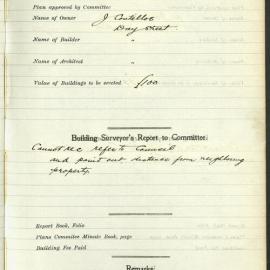 Plan approved by Committee
Name of Owner J Costelloe
Day Street
Name of Builder "
Name of Architect "
Value of Buildings to be erected £00
Building Surveyor's Report to Committee.
Cannot rec refer to Council
and point out distance from neighboring
property.
Report Book, Folio
Plans Committee Minute Book, page
Building Fee Paid
Remarks